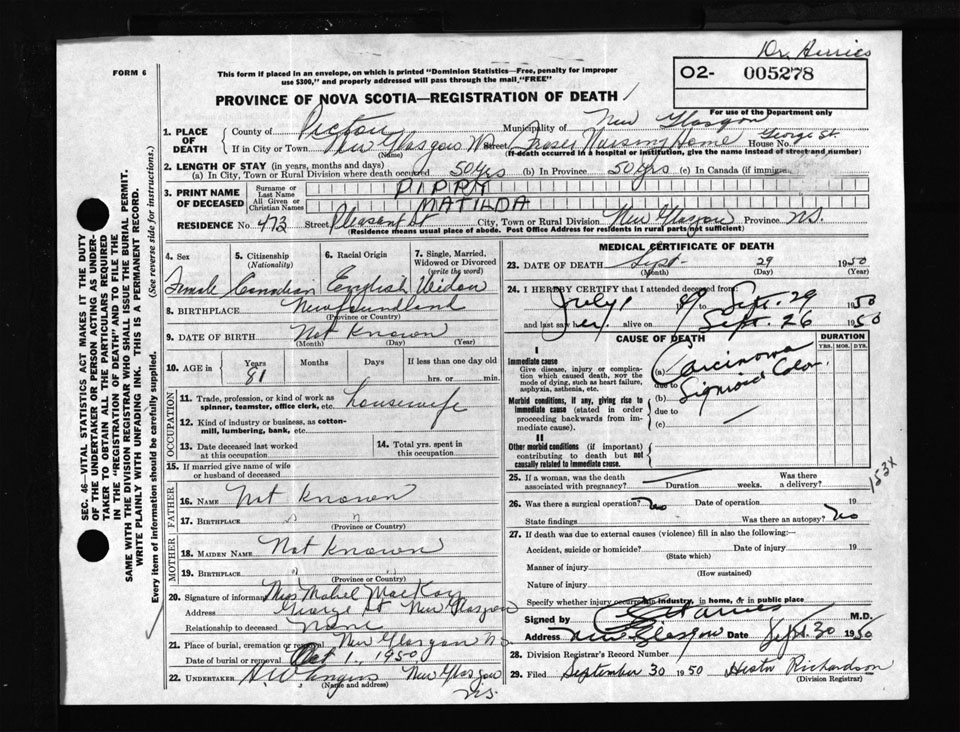 Dr. Harries
FORM 6
This form if placed in an envelope, on which is printed "Dominion Statistics—Free, penalty for improper
use $300," and properly addressed will pass through the mail "FREE"
02- 005278
PROVINCE OF NOVA SCOTIA—REGISTRATION OF DEATH
For use of the Department only
1. PLACE OF DEATH
County of Pictou Municipality of New Glasgow
If in City or Town New Glasgow N.S. Street Fraser Nursing Home House No. George St.
(Name) (If death occurred in a hospital or institution, give the name instead of street and number)
2. LENGTH OF STAY (in years, months and days)
(a) In City, Town or Rural Division where death occurred 50 Yrs (b) In Province 50 Yrs (c) In Canada (if immigrant)
3. PRINT NAME OF DECEASED
Surname or Last Name PIPPY
All Given or Christian Names MATILDA
RESIDENCE No. 473 Street Pleasant St City, Town or Rural Division New Glasgow Province N.S.
(Residence means usual place of abode. Post Office Address for residents in rural parts not sufficient)
4. Sex 5. Citizenship (Nationality) 6. Racial Origin 7. Single, Married, Widowed or Divorced (write the word)
Female Canadian English Widow
8. BIRTHPLACE Newfoundland
(Province or Country)
9. DATE OF BIRTH Not Known
(Month) (Day) (Year)
10. AGE in Years Months Days If less than one day old
81 hrs. or min.
OCCUPATION
11. Trade, profession, or kind of work as spinner, teamster, office clerk, etc. housewife
12. Kind of industry or business, as cotton-mill, lumbering, bank, etc.
13. Date deceased last worked at this occupation
14. Total yrs. spent in this occupation
15. If married give name of wife or husband of deceased
FATHER
16. NAME Not Known
17. BIRTHPLACE " "
(Province or Country)
MOTHER
18. MAIDEN NAME Not Known
19. BIRTHPLACE " "
(Province or Country)
20. Signature of informant Miss Mabel MacKay
Address George St New Glasgow
Relationship to deceased None
21. Place of burial, cremation or removal New Glasgow N.S.
Date of burial or removal Oct 1, 1950
22. UNDERTAKER H.W. Angus New Glasgow
(Name and address) N.S.
MEDICAL CERTIFICATE OF DEATH
23. DATE OF DEATH Sept- 29 1950
(Month) (Day) (Year)
24. I HEREBY CERTIFY that I attended deceased from:
July 1 1949 to Sept. 29 1950
and last saw her alive on Sept. 26 1950
CAUSE OF DEATH DURATION
YRS. MOS. DYS.
I
Immediate cause
Give disease, injury or complication which caused death, not the mode of dying, such as heart failure, asphyxia, asthenia, etc.
(a) Carcinoma
due to Sigmoid Colon
Morbid conditions, if any, giving rise to immediate cause (stated in order proceeding backwards from immediate cause).
(b)
due to
(c)
II
Other morbid conditions (if important) contributing to death but not causally related to immediate cause.
153X
25. If a woman, was the death associated with pregnancy? Duration weeks. Was there a delivery?
26. Was there a surgical operation? No Date of operation 19
State findings Was there an autopsy? No
27. If death was due to external causes (violence) fill in also the following:—
Accident, suicide or homicide? Date of injury 19
(State which)
Manner of injury
(How sustained)
Nature of injury
Specify whether injury occurred in industry, in home, or in public place
Signed by Harries M.D.
Address New Glasgow Date Sept. 30 1950
28. Division Registrar's Record Number
29. Filed September 30 1950 Hester Richardson
(Division Registrar)
SEC. 46—VITAL STATISTICS ACT MAKES IT THE DUTY
OF THE UNDERTAKER OR PERSON ACTING AS UNDER-
TAKER TO OBTAIN ALL THE PARTICULARS REQUIRED
IN THE "REGISTRATION OF DEATH" AND TO FILE THE
SAME WITH THE DIVISION REGISTRAR WHO SHALL ISSUE THE BURIAL PERMIT.
WRITE PLAINLY WITH UNFADING INK. THIS IS A PERMANENT RECORD.
Every item of information should be carefully supplied. (See reverse side for instructions.)